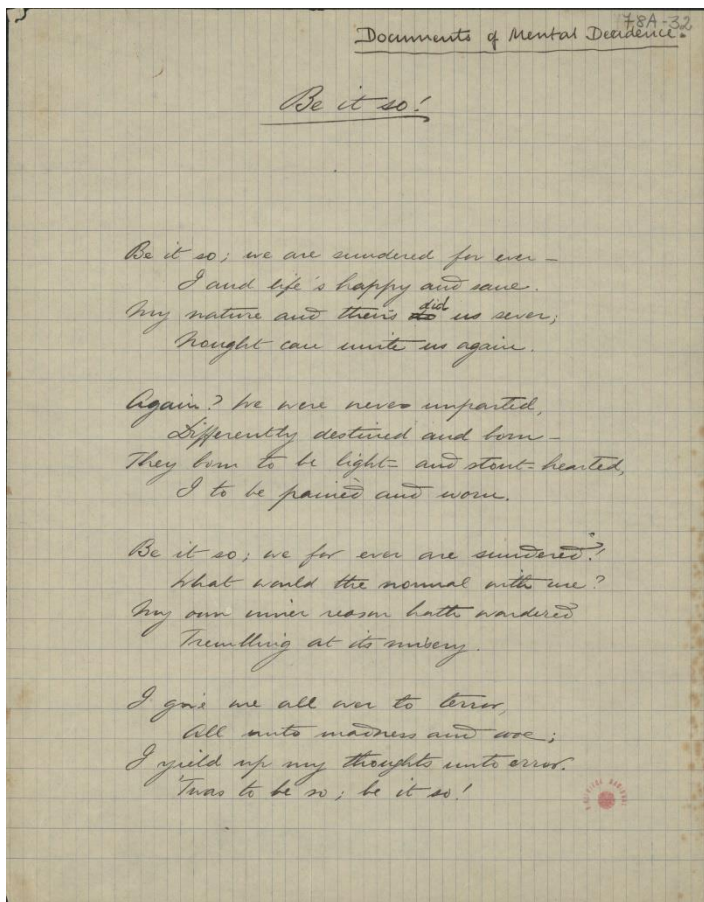 78A-32
Documents of Mental Decidence.
Be it so!
Be it so; we are sundered for ever –
I and life's happy and sane.
My nature and theirs did us sever;
Nought can unite us again.
Again? We were never unparted,
Differently destined and born –
They born to be light= and stout=hearted,
I to be pained and worn.
Be it so; we for ever are sundered!
What would the normal with me?
My own inner reason hath wondered
Trembling at its misery.
I give me all over to terror,
All unto madness and woe;
I yield up my thoughts unto error.
'Twas to be so; be it so!